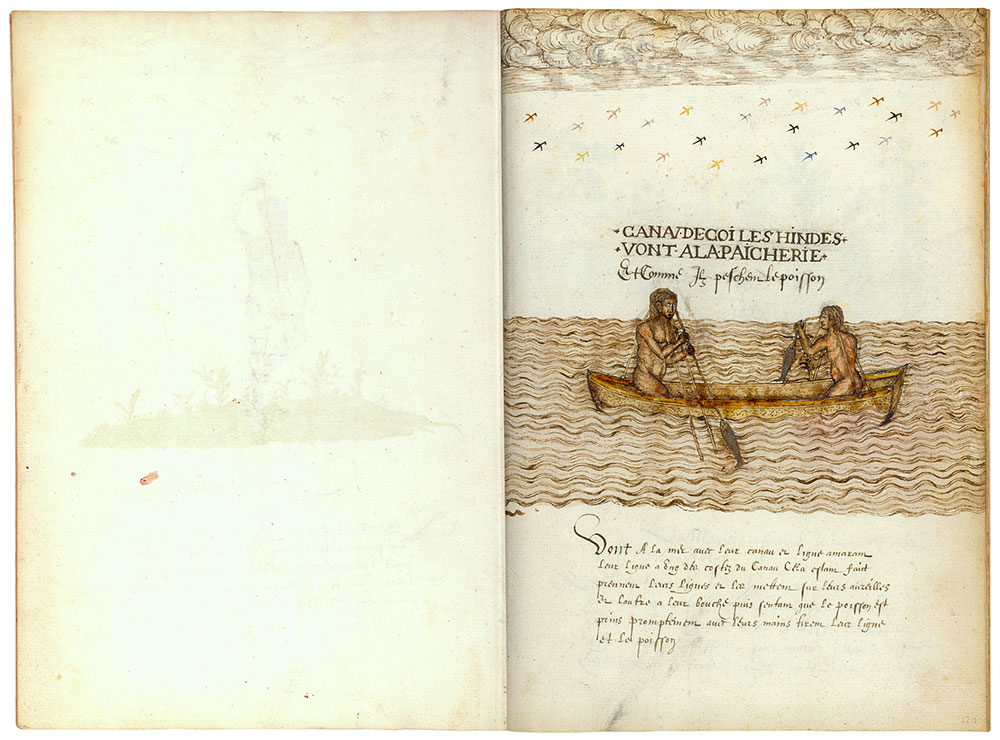 CANAV·DE COI LES HINDES
·VONT·A LA·PAICHERIE·
Et Comme Ilz peschen le poisson
Vont A la mer avec leur canau et ligne amaram
leur ligne a ung des costez du Canau Cela estam faict
prennem leurs lignes et les mettem sur leurs aureilles
et lautre a leur bouche puis sentam que le poisson est
prins promptemem avec leurs mains tirem leur ligne
et le poisson